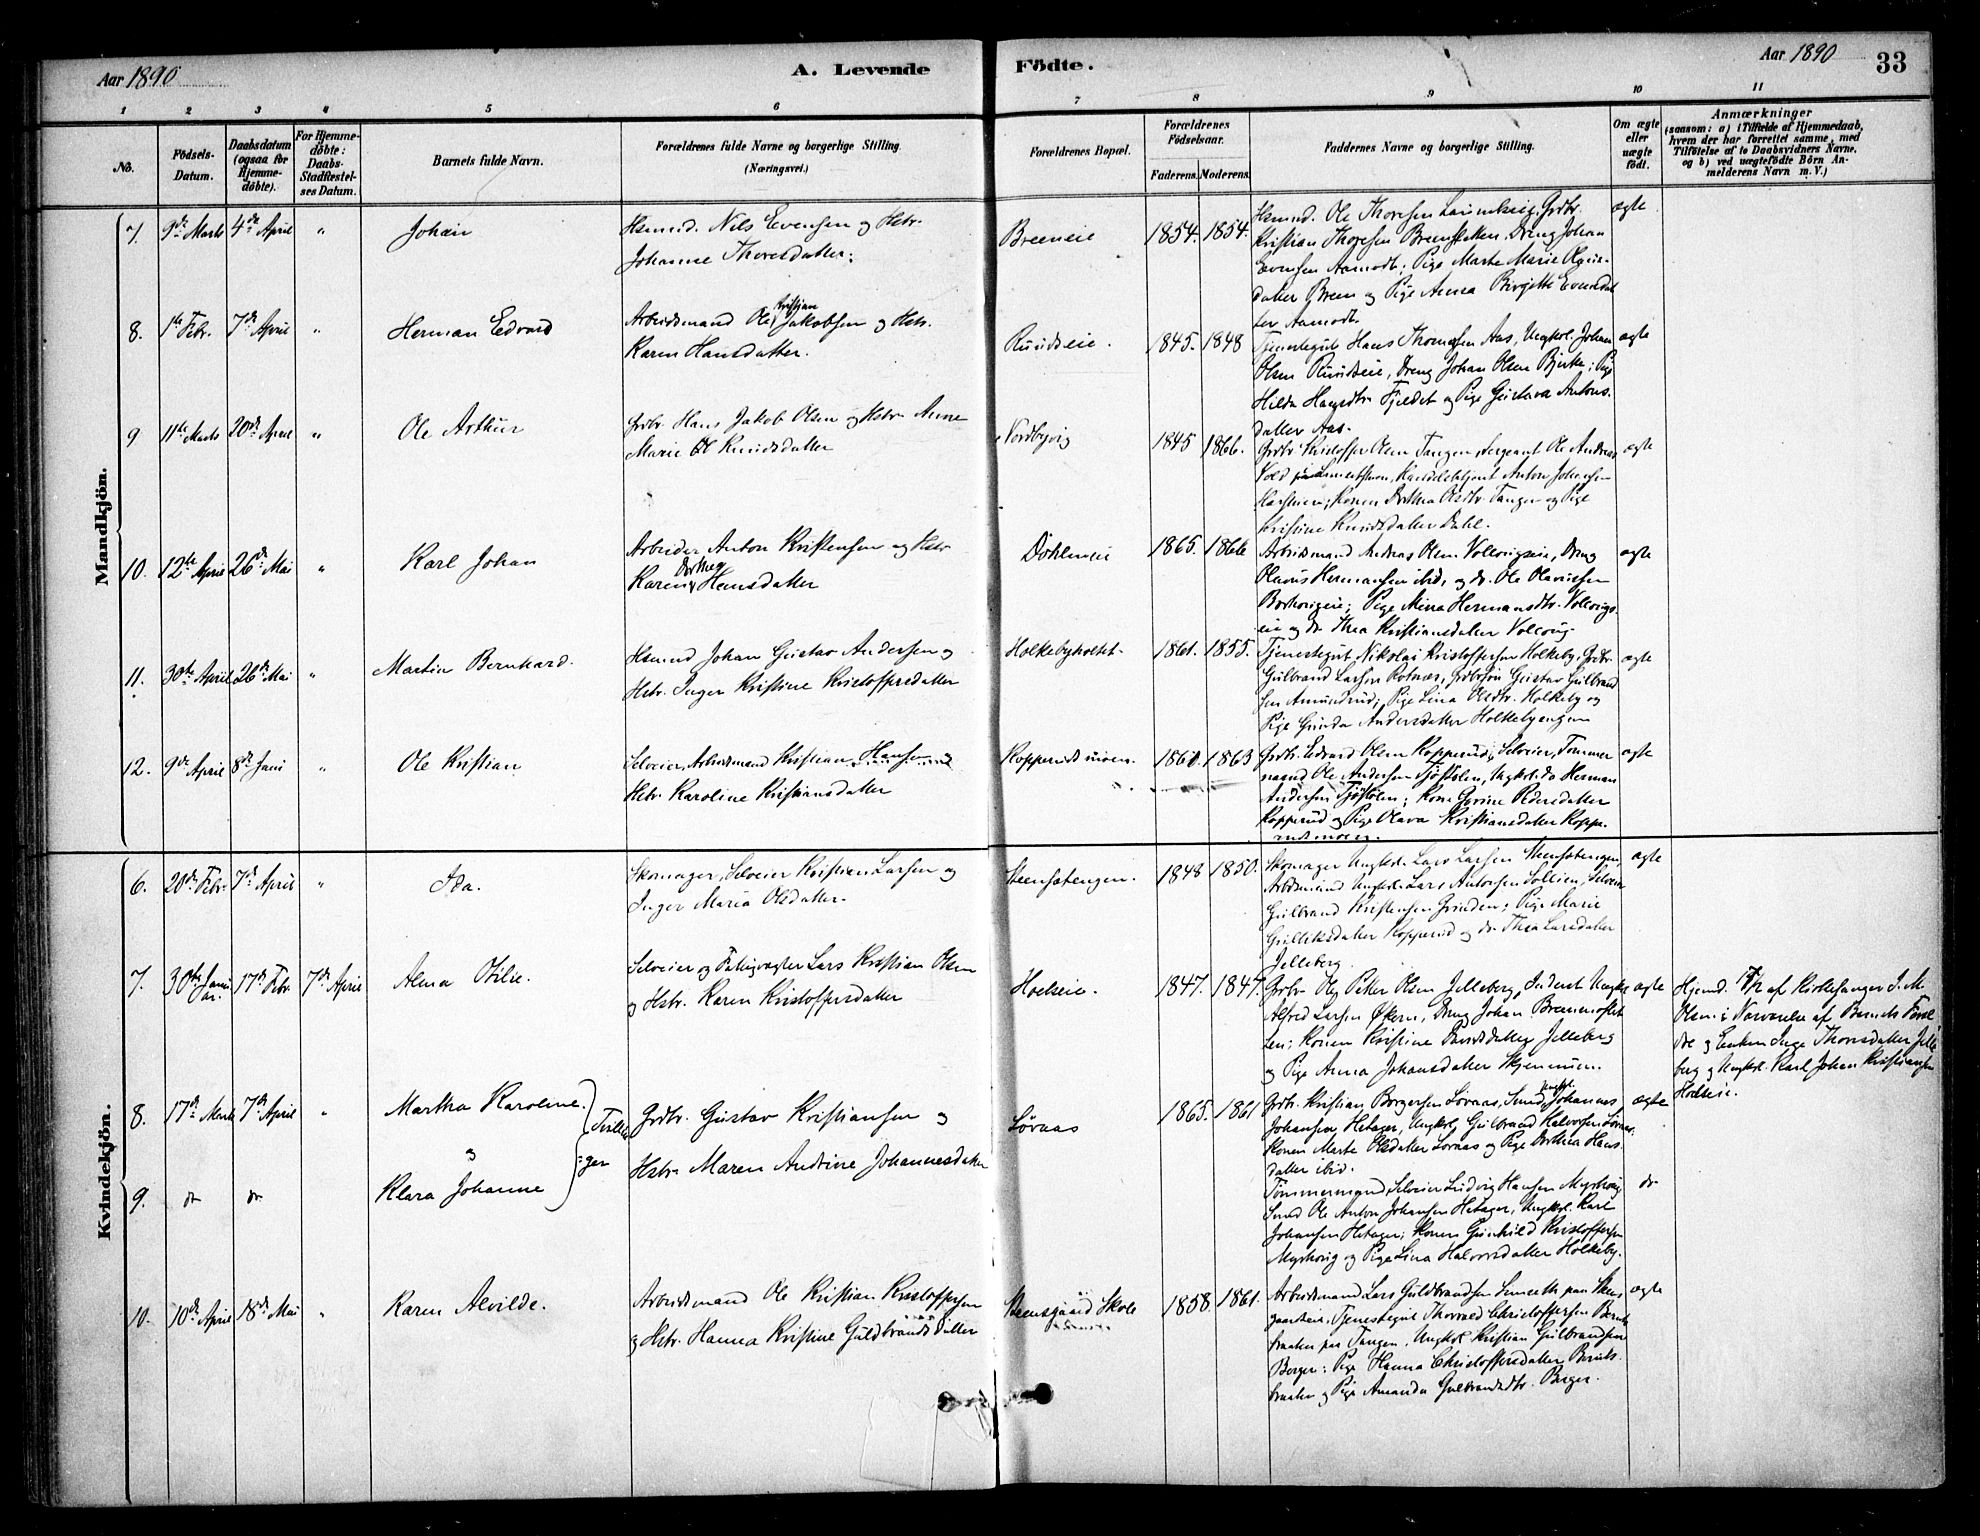 Aar 1890
A. Levende
Födte.
Aar 1890
33
1 2 3 4 5 6 7 8 9 10 11
No.
Födsels-
Datum.
Daabsdatum
(ogsaa for
Hjemme-
döbte).
For Hjemme-
döbte:
Daabs-
Stadfæstel-
ses Datum.
Barnets fulde Navn.
Forældrenes fulde Navne og borgerlige Stilling.
(Næringsvei.)
Forældrenes Bopæl.
Forældrenes
Födselsaar.
Faderens. Moderens.
Faddernes Navne og borgerlige Stilling.
Om ægte
eller
uægte
födt.
Anmærkninger
(saasom: a) i Tilfælde af Hjemmedaab,
hvem der har forrettet samme, med
Tilföielse af to Daabsvidners Navne,
og b) ved uægtefödte Börn An-
melderens Navn m. V.)
Mandkjön.
7. 9de Marts 4de April " Johan
Hsmnd. Nils Evensen og Hstr.
Johanne Thoresdatter.
Breeneie 1854. 1854.
Hsmnd. Ole Thoresen Grdbr.
Kristian Thoresen Dreng Johan
Evensen Aamodt; Pige Marte Marie
datter Breen og Pige Anna Birgitte Evensdat
ter Aamodt.
ægte
8. 1ste Febr. 7de April " Herman Edvard
Arbeidsmand Ole Kristian Jakobsen og Hstr.
Karen Hansdatter.
Ruudseie. 1845. 1848
Tjenestegut Hans Thomesen Aas, Ungkl. Johan
Olsen Ruudseie, Dreng Johan Olsen Bjerke; Pige
Hilda Hansdtr. Fjeldet og Pige Gustava Antons-
datter Aas.
ægte
9 11te Marts 20de April " Ole Arthur
Grdbr. Hans Jakob Olsen og Hstr. Anne
Marie Knudsdatter
Nordbyvig 1845 1866.
Grdbr. Kristoffer Olsen Tangen, Sergeant Ole Andreas
Vold Handelsbetjent Anton Johansen
Konen Dorthea Olsdtr. Tangen og Pige
Kristine Knudsdatter Dahl.
ægte
10. 12te April 26de Mai " Karl Johan
Arbeider Anton Kristensen og Hstr.
Karen Dorthea Hansdatter
Döhleneie 1865. 1866
Arbeidsmand Andreas Olsen Dreng
Olavus Hermansen ibid, og do. Ole Olavesen
Pige Mina Hermansdtr.
eie og do. Thea Kristiansdatter
ægte
11. 30te April 26de Mai " Martin Bernhard.
Hsmnd Johan Gustav Andersen og
Hstr. Inger Kristine Kristoffersdatter
Holkebyholtet. 1861. 1855.
Tjenestegut Nikolai Kristoffersen Holkeby, Grdbr.
Gulbrand Larsen Rotnæs, Grdbrsön Gustav Gulbrand
sen Amundrud; Pige Lina Olsdtr. Holkeby og
Pige Gunda Andersdatter Holkebyengen
ægte
12. 9de April 8de Juni " Ole Kristian
Selveier, Arbeidsmand Kristian Hansen og
Hstr. Karoline Kristiansdatter
Kopperudsmoen. 1860. 1863
Grdbr. Edvard Olsen Kopperud, Selveier, Tømmer
mand Ole Andersen Tjöstölen, Ungkl. do Herman
Andersen Tjöstölen; Kone Gorine Pedersdatter
Kopperud og Pige Olava Kristiansdatter Koppe-
rudsmoen.
ægte
Kvindekjön.
6. 20de Febr. 7de April " Ida.
Skomager, Selveier Kristian Larsen og
Inger Maria Olsdatter.
Steensstengen. 1848 1850.
Skomager Ungkrl. Lars Larsen Steensstengen,
Arbdsmand Ungkrl. Lars Antonsen Sollien, Selveier
Gulbrand Kristensen Grinden; Pige Marie
Gulliksdatter Kopperud og do. Thea Larsdatter
Jelleberg
ægte
7. 30te Janu-
ar. 17de Febr. 7de April Alma Otilie.
Selveier og Fattigvægter Lars Kristian Olsen
og Hstr. Karen Kristoffersdatter
Hoelseie. 1847. 1847.
Grdbr. Ole Petter Olsen Jelleberg, Inderst Ungkrl
Alfred Larsen Økern, Dreng Johan
Konen Kristine Jelleberg
og Pige Anna Johansdatter Skjennum.
ægte
Hjemd. 17/2 af Kirkesanger J. M.
Olsen i Nærværelse af Barnets Foræl
dre og Enken Inge Thoresdatter Jelle
berg og Ungkrl. Karl Johan Kristiansen
Hoelseie.
8. 17de Marts 7de April " Martha Karoline.
og
Tvillin
ger
Grdbr. Gustav Kristiansen og
Hstr. Maren Andrine Johannesdatter
Løvaas 1865. 1861
Grdbr. Kristian Borgersen Lovaas, Smed, Ungkl. Johannes
Johansen Hetager, Ungkrl. Gulbrand Halvorsen Løvaas
Konen Marte Olsdatter Lovaas og Pige Dorthea Hans
datter ibid.
ægte
9. do do Klara Johanne
Tømmermand, Selveier Ludvig Hansen Myrhoug
Smed Ole Anton Johansen Hetager, Ungkrl. Karl
Johansen Hetager; Konen Gunhild Kristoffersen
Myrhoug og Pige Lina Halvorsdatter Holkeby.
do
10. 10de April 18de Mai " Karen Alvilde.
Arbeidsmand Ole Kristian Kristoffersen
og Hstr. Hanna Kristine Guldbrandsdatter
Steensgaard Skole 1858. 1861.
Arbeidsmand Lars Guldbrandsen paa Steens
gaardseie, Tjenestegut Thorvald Christoffersen
braaten paa Tangen, Ungkrl. Kristian Gulbrandsen
Berger; Pige Hanna Christoffersdatter
braaten og Pige Amanda Gulbrandsdtr. Berger.
ægte